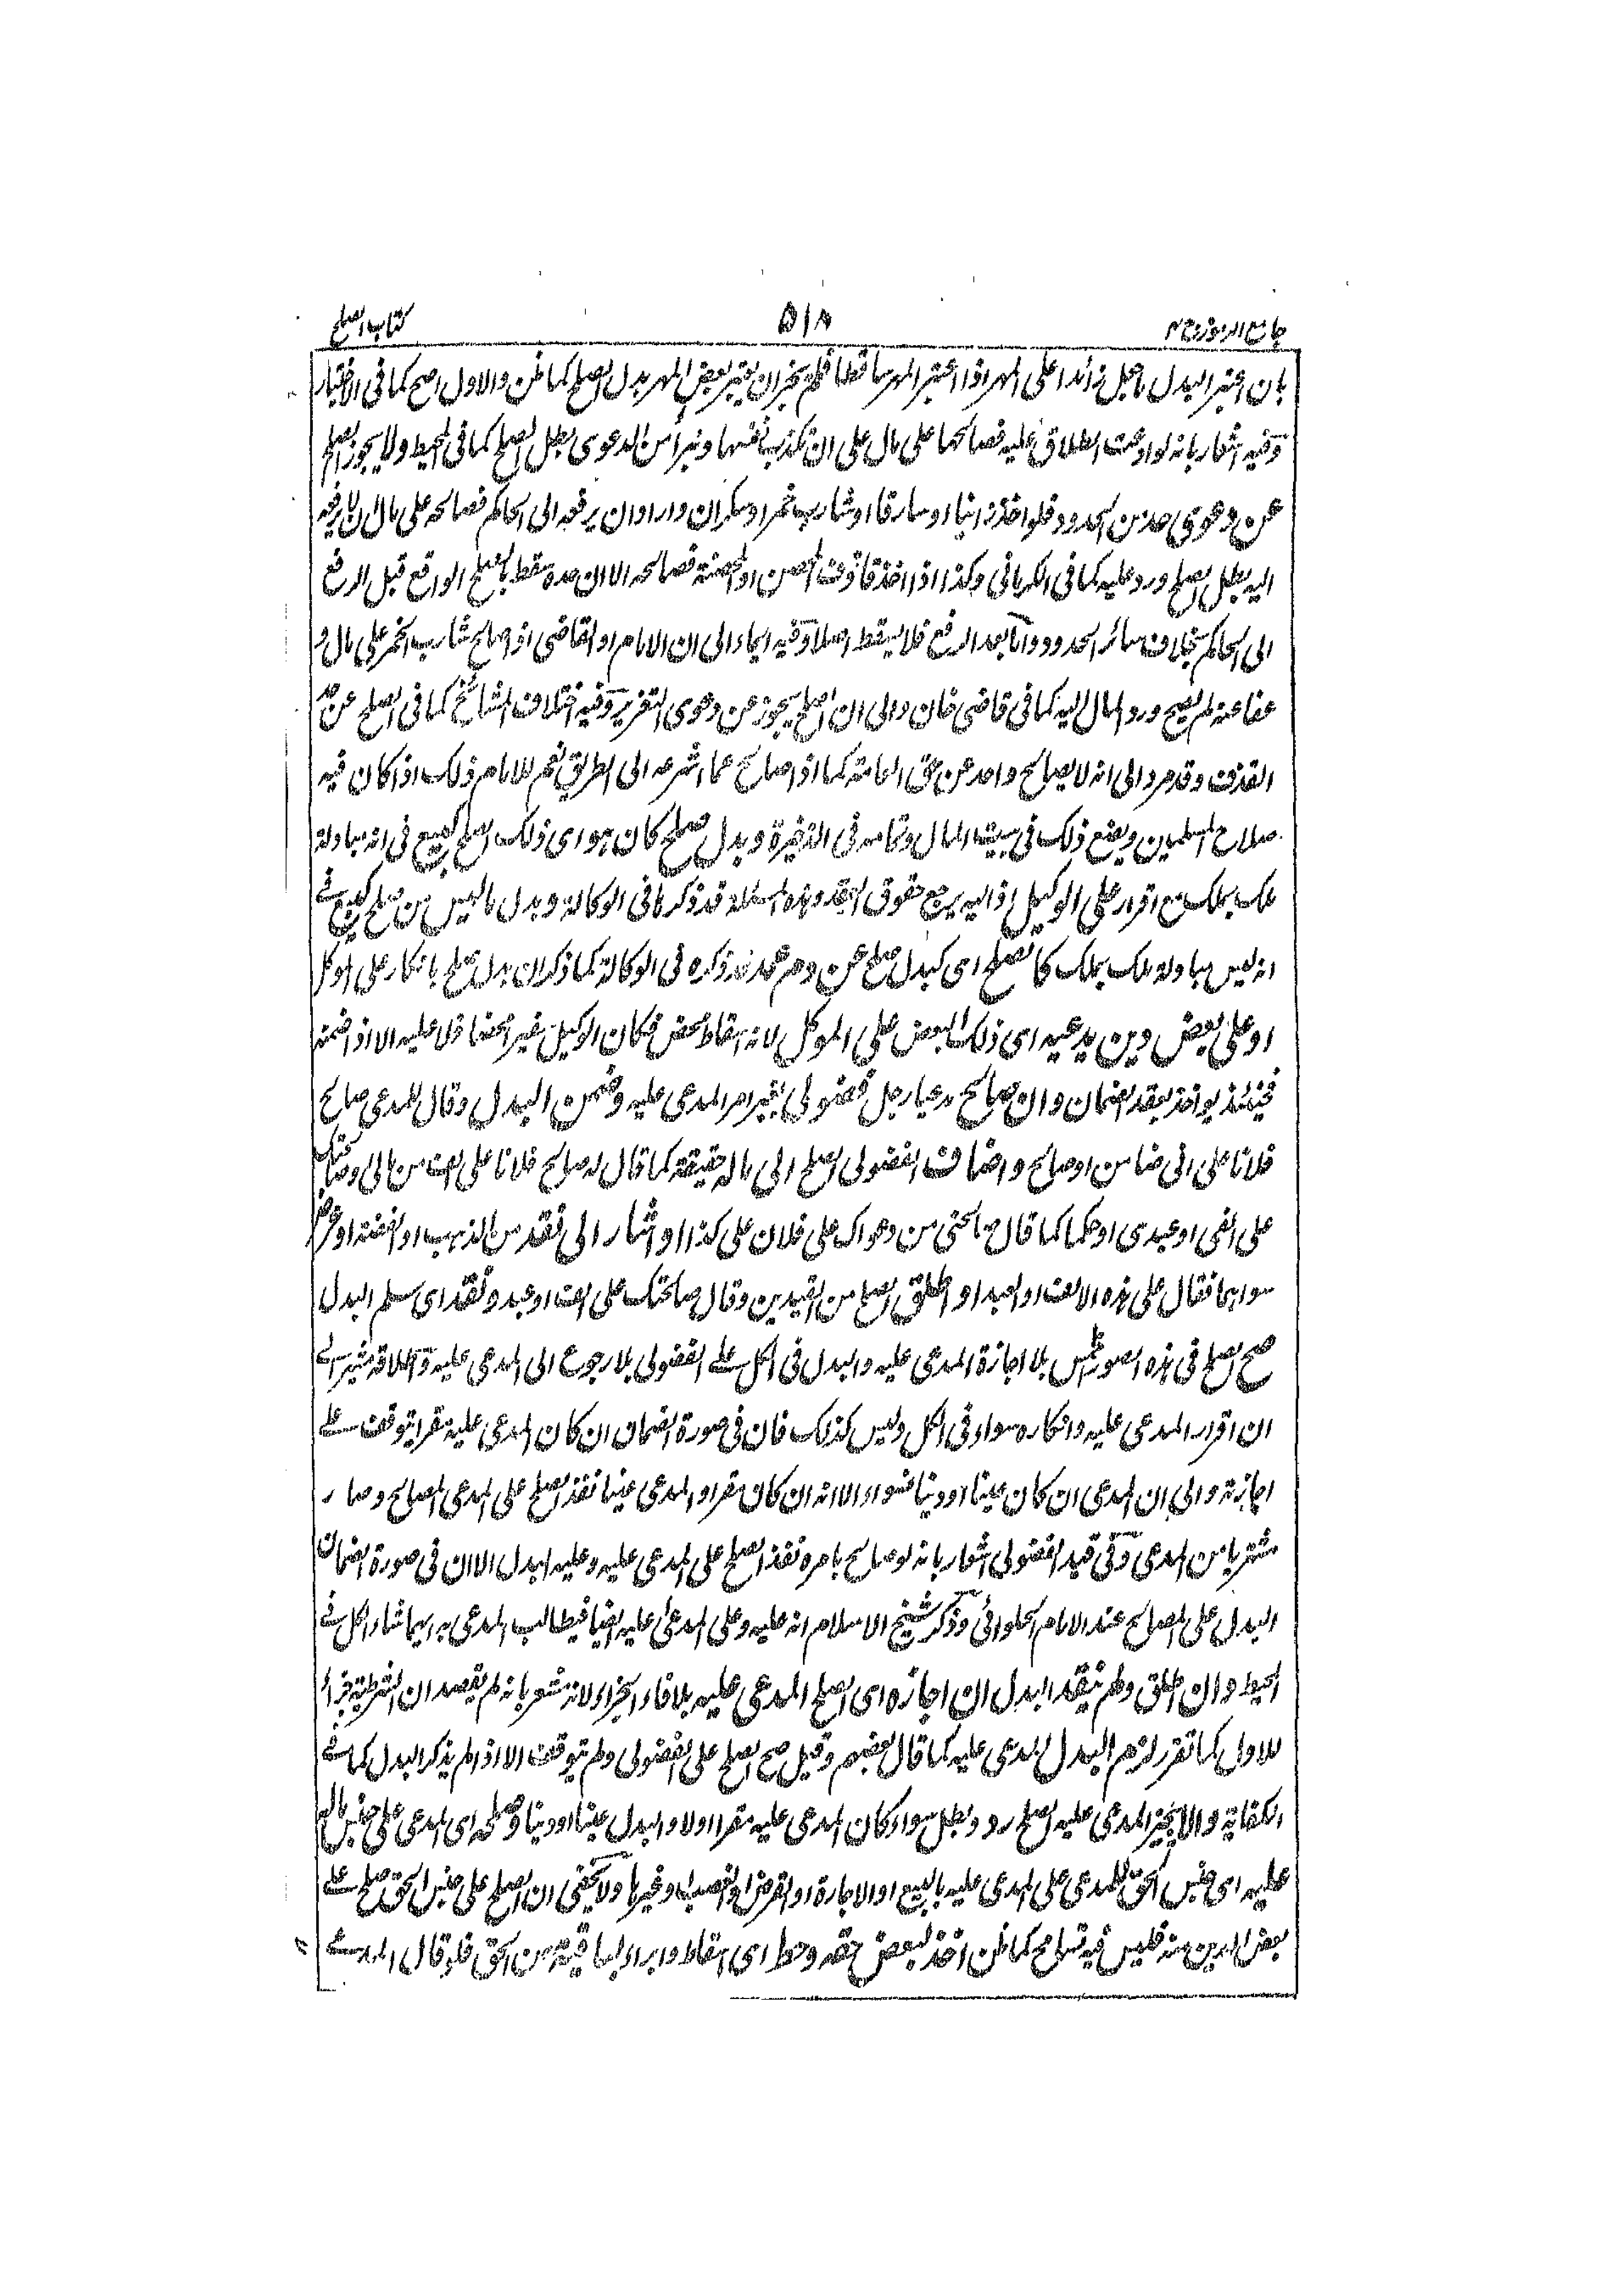 جامع الرموز ج ٢
٥١٨
كتاب الصلح
بان اعتبر البدل ما جعل زائدا على المهر اذا اعتبر المهر ساقطا فلم يجز ان يعتبر بعض المهر بدل الصلح كما ظن والاول اصح كما فى الاختيار
وفيه اشعار بانه لو ادعت الطلاق عليه فصالحها على مال على ان تكذب نفسها وتبرأ من الدعوى بطل الصلح كما فى المحيط ولا يجوز الصلح
عن دعوى حد من الحدود فلو اخذ زانيا او سارقا او شارب خمر او سكران واراد ان يرفعه الى الحاكم فصالحه على مال ان لا يرفعه
اليه بطل الصلح ورد عليه كما فى الكرمانى وكذا اذا اخذ قاذف المحصن او المحصنة فصالحه الا ان حده سقط بالصلح الواقع قبل الرفع
الى الحاكم بخلاف سائر الحدود واما بعد الرفع فلا يسقط اصلا وفيه ايماء الى ان الامام او القاضى اذا صالح شارب الخمر على مال و
عفا عنه لم يصح ورد المال اليه كما فى قاضى خان والى ان الصلح يجوز عن دعوى التعزير وفيه اختلاف المشائخ كما فى الصلح عن حد
القذف وقد مر والى انه لا يصالح واحد عن حق العامة كما اذا صالح عما اشرعه الى الطريق نعم للامام ذلك اذا كان فيه
صلاح المسلمين ويضع ذلك فى بيت المال وتمامه فى الذخيرة وبدل صلح كان هو اى ذلك الصلح كبيع فى انه مبادلة
ملك بملك مع اقرار على الوكيل اذ اليه يرجع حقوق العقد وهذه المسئلة قد ذكرها فى الوكالة وبدل ما ليس من صلح كبيع فى
انه ليس مبادلة ملك بملك كالصلح اى كبدل صلح عن دم عمد قد ذكره فى الوكالة كما ذكر ان بدل صلح بانكار على الموكل
او على بعض دين يدعيه اى ذلك البعض على الموكل لانه اسقاط محض فكان الوكيل سفيرا محضا فلا عليه الا اذا ضمنه
فحينئذ يواخذ بعقد الضمان وان صالح مدعيا رجل فضولى بغير امر المدعى عليه وضمن البدل وقال للمدعى صالح
فلانا على انى ضامن او صالح واضاف الفضولى الصلح الى ماله حقيقة كما قال له صالح فلانا على الف من مالى وصالحتك
على الفى او عبدى او حكما كما قال صالحنى من دعواك على فلان على كذا او اشار الى نقد من الذهب او الفضة او عرض
سواهما فقال على هذه الالف او العبد او اطلق الصلح من القيدين وقال صالحتك على الف او عبد ونقد اى سلم البدل
صح الصلح فى هذه الصور الخمس بلا اجازة المدعى عليه والبدل فى الكل على الفضولى بلا رجوع الى المدعى عليه واطلاقه مشير الى
ان اقرار المدعى عليه وانكاره سواء فى الكل وليس كذلك فان فى صورة الضمان ان كان المدعى عليه مقرا يتوقف على
اجازته والى ان المدعى ان كان عينا او دينا فسواء الا انه ان كان مقرا والمدعى عينا نفذ الصلح على المدعى المصالح وصار
مشتريا من المدعى وفى قيد الفضولى اشعار بانه لو صالح بامره نفذ الصلح على المدعى عليه وعليه البدل الا ان فى صورة الضمان
البدل على المصالح عند الامام الحلوائى وذكر شيخ الاسلام انه عليه وعلى المدعى عليه ايضا فيطالب المدعى به ايهما شاء الكل فى
المحيط وان اطلق ولم ينقد البدل ان اجازه اى الصلح المدعى عليه بلا فاء الجزاء لانه مشعر بانه لم يقصد ان الشرطية جزاء
للاول كما تقرر لزم البدل المدعى عليه كما قال بعضهم وقيل صح الصلح على الفضولى ولم يتوقف الا اذا لم يذكر البدل كما فى
الكفاية والا يجيز المدعى عليه الصلح رد وبطل سواء كان المدعى عليه مقرا اولا والبدل عينا او دينا وصلحه اى المدعى على جنس ماله
عليه اى جنس الحق للمدعى على المدعى عليه بالبيع او الاجارة او القرض او الغصب او غيرها ولا يخفى ان الصلح على جنس الحق صلح على
بعض الدين منه فليس فيه تسامح كما ظن اخذ لبعض حقه وحط اى اسقاط وابراء لباقيه من الحق فلو قال المدعى